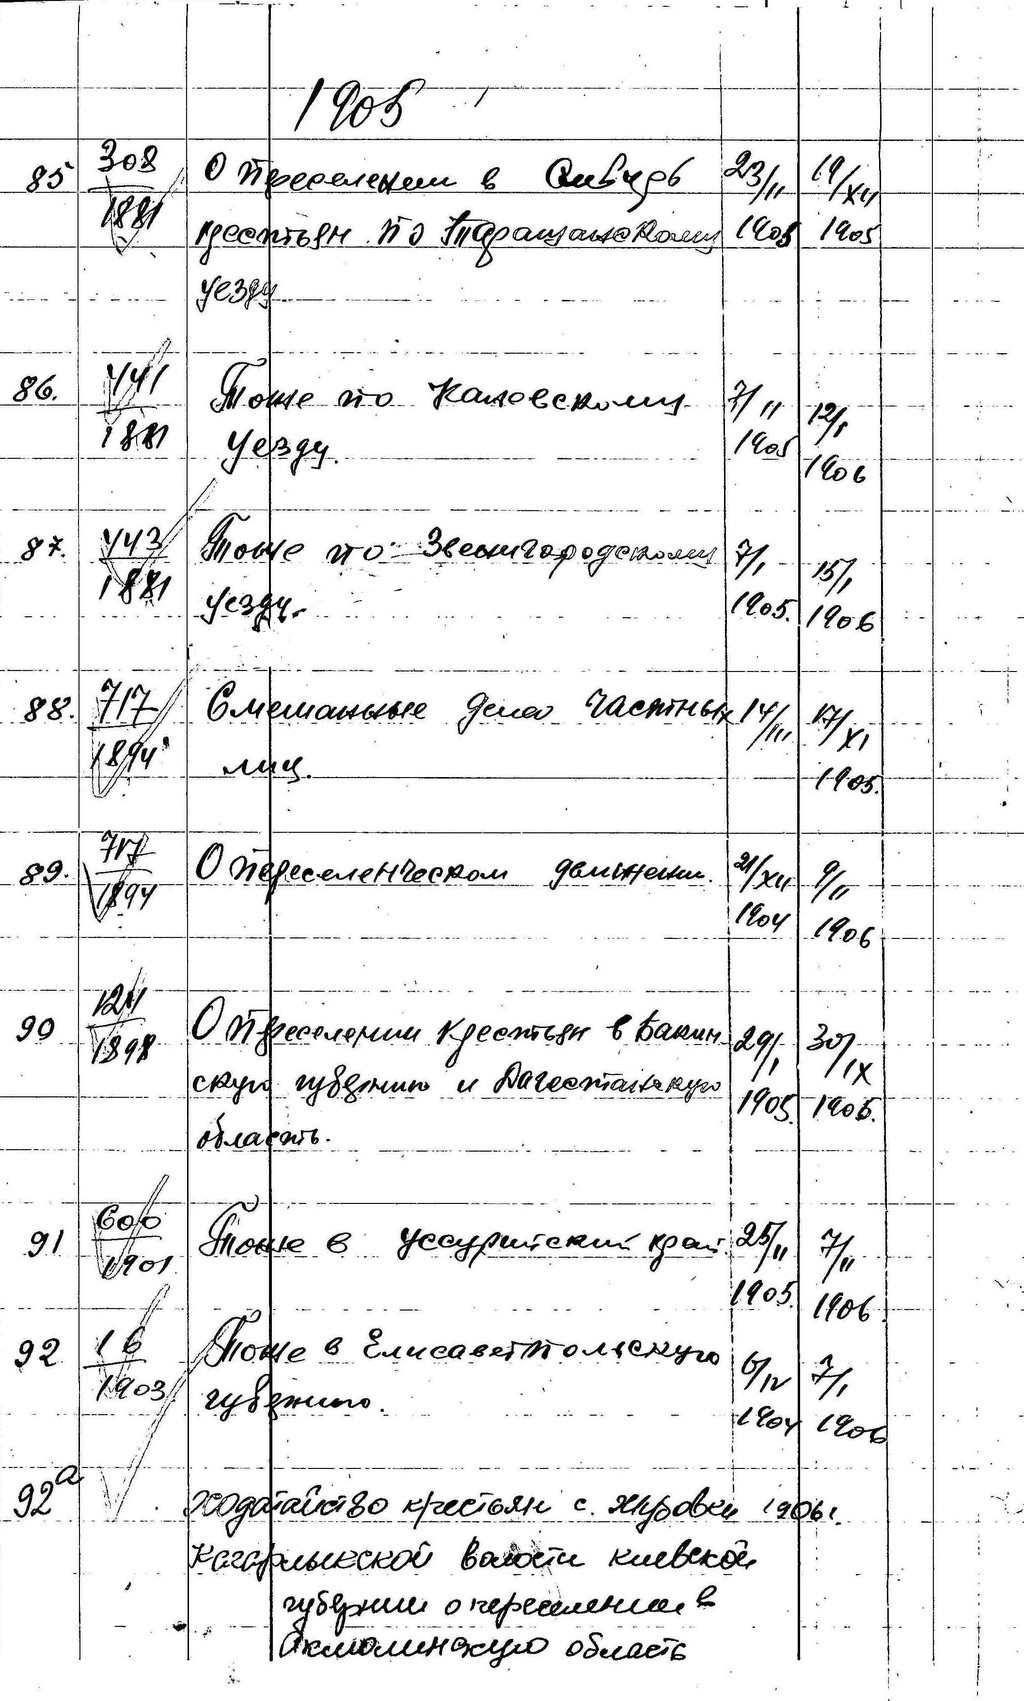 1905
85 308/1881 О переселении в Сибирь 23/II 19/XII
крестьян по Таращанскому 1905 1905
уезду
86. 441/1881 Тоже по Каневскому 7/II 12/I
уезду. 1905 1906
87. 443/1881 Тоже по Звенигородскому 7/I 15/I
уезду. 1905. 1906
88. 717/1894 Смешанные дела частных 14/III 17/XI
лиц. 1905.
89. 717/1894 О переселенческом движении. 21/XII 9/II
1904 1906
90 1898 О переселении крестьян в Бакин 29/I 30/IX
скую губернию и Дагестанскую 1905. 1905.
область.
91 600/1901 Тоже в уссурийский край. 25/II 7/II
1905. 1906
92 16/1903 Тоже в Елисаветпольскую 6/IV 7/I
губернию. 1904 1906
92а Ходатайство крестьян с. Журовки 1906г.
Кагарлыкской волости киевской
губернии о переселении в
Акмолинскую область